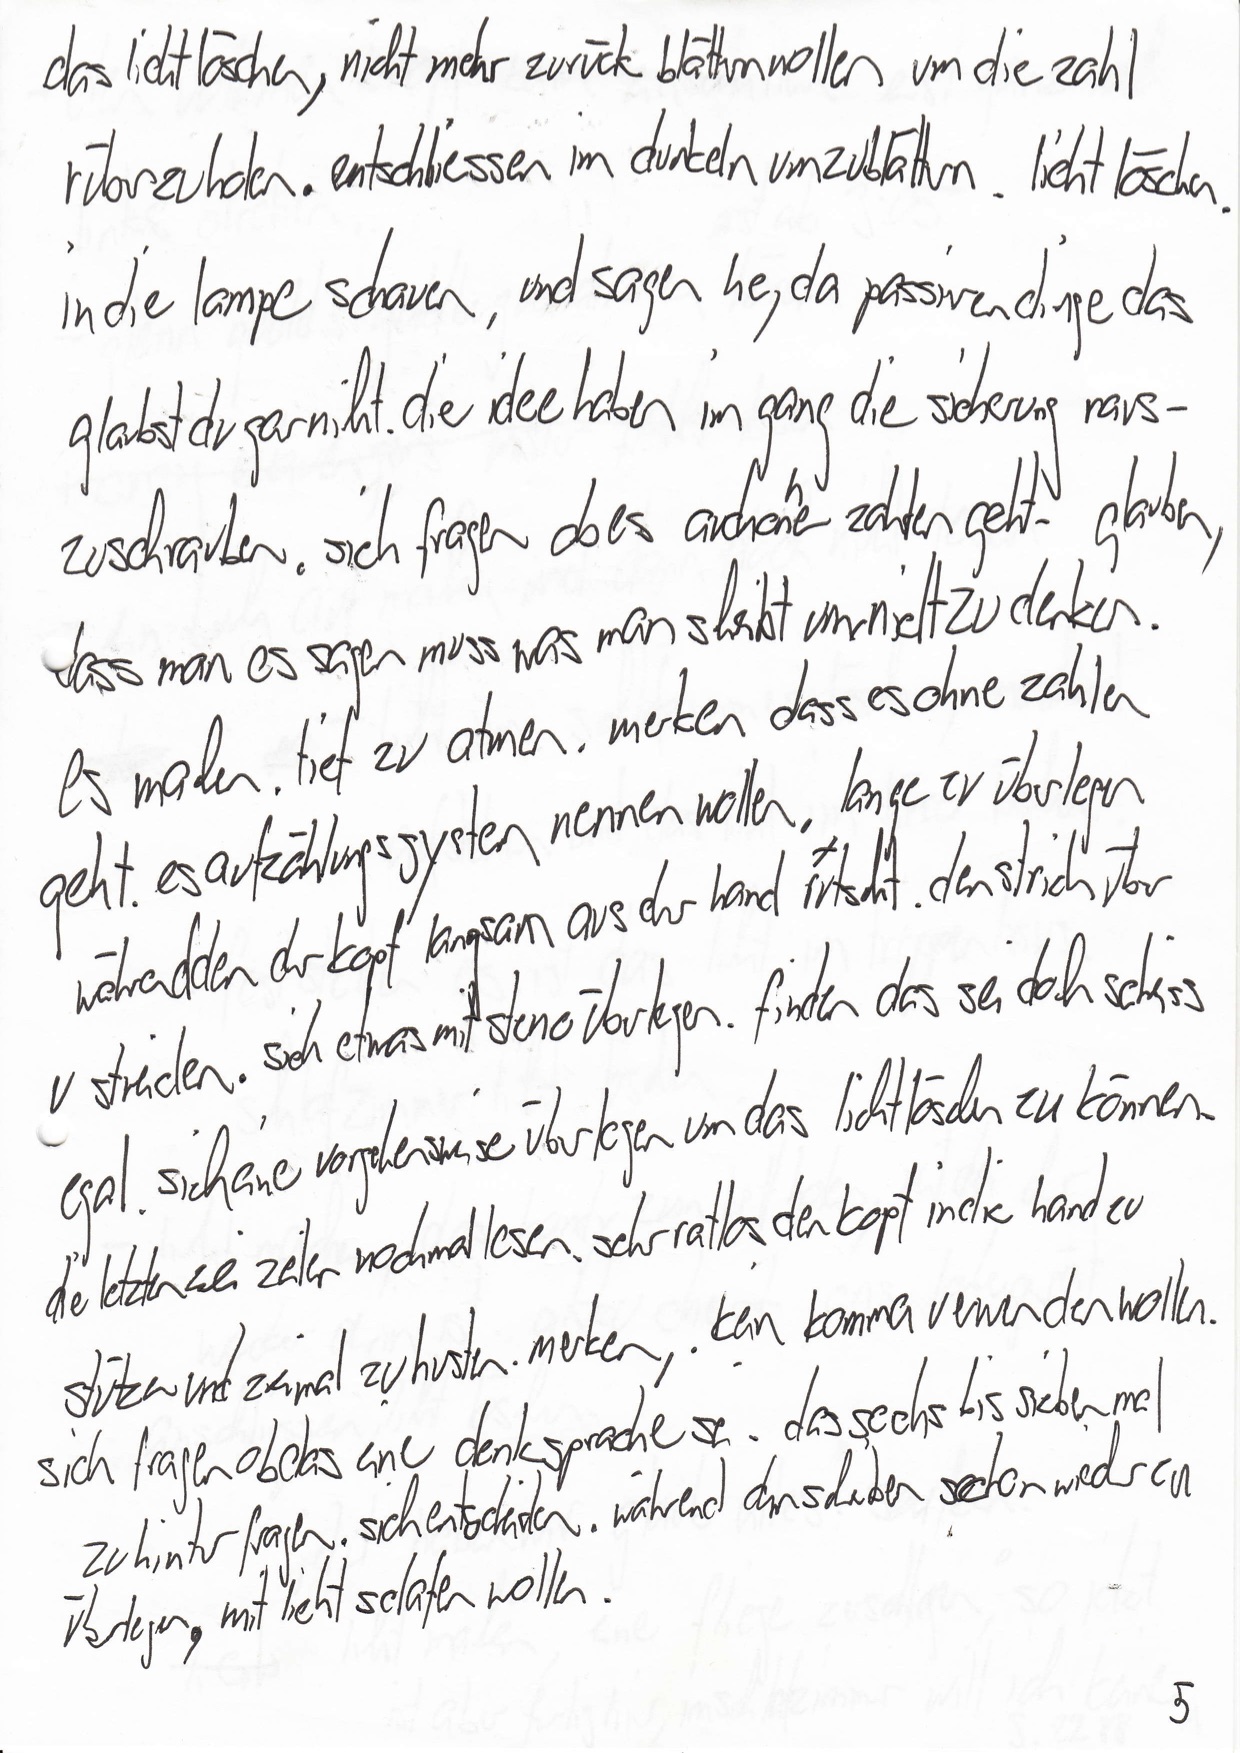 das licht löschen, nicht mehr zurück blättern wollen um die zahl
rüberzuholen. entschliessen im dunkeln umzublättern. licht löschen.
in die lampe schauen, und sagen he, da passieren dinge das
glaubst du gar nicht. die idee haben im gang die sicherung raus-
zuschrauben. sich fragen ob es auch ohne zahlen geht- glauben,
dass man es sagen muss was man schreibt um nicht zu denken.
es machen. tief zu atmen. merken dass es ohne zahlen
geht. es aufzählungssystem nennen wollen, lange zu überlegen
während der kopf langsam aus der hand rutscht. den strich über
u streichen. sich etwas mit steno überlegen. finden das sei doch scheiss
egal. sich eine vorgehensweise überlegen um das licht löschen zu können.
die letzten zwei zeilen nochmal lesen. sehr ratlos den kopf in die hand zu
stützen und zweimal zu husten. merken,. kein komma verwenden wollen.
sich fragen ob das eine denksprache sei. das sechs bis sieben mal
zu hinterfragen. sich entscheiden. während dem schreiben schon wieder
überlegen, mit licht schlafen wollen.
5